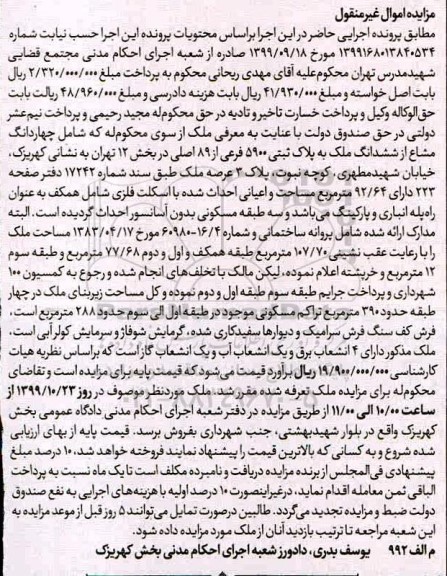 مزایده اموال غیرمنقول
مطابق پرونده اجرایی حاضر در این اجرا براساس محتویات پرونده این اجرا حسب نیابت شماره
۱۳۹۹۱۶۸۰۱۳۸۴۰۵۳۴ مورخ ۱۳۹۹/۰۹/۱۸ صادره از شعبه اجرای احکام مدنی مجتمع قضایی
شهیدمدرس تهران محکوم‌علیه آقای مهدی ریحانی محکوم به پرداخت مبلغ ۲/۳۲۰/۰۰۰/۰۰۰ ریال
بابت اصل خواسته و مبلغ ۴۱/۹۳۰/۰۰۰ ریال بابت هزینه دادرسی و مبلغ ۴۸/۹۶۰/۰۰۰ ریالت بابت
حق‌الوکاله وکیل و پرداخت خسارت تاخیر و تادیه در حق محکوم‌له مجید رحیمی و پرداخت نیم‌عشر
دولتی در حق صندوق دولت با عنایت به معرفی ملک از سوی محکوم‌له که شامل چهاردانگ
مشاع از ششدانگ ملک به پلاک ثبتی ۵۹۰۰ فرعی از ۸۹ اصلی در بخش ۱۲ تهران به نشانی کهریزک،
خیابان شهیدمطهری، کوچه نبوت، پلاک ۳ عرصه ملک طبق سند شماره ۱۷۲۴۲ دفتر صفحه
۲۲۳ دارای ۹۲/۶۴ مترمربع مساحت و اعیانی احداث شده با اسکلت فلزی شامل همکف به عنوان
راه‌پله انباری و پارکینگ می‌باشد و سه طبقه مسکونی بدون آسانسور احداث گردیده است. البته
مدارک ارائه شده شامل پروانه ساختمانی و شماره ۶۰۹۸۰-۱۶/۴ مورخ ۱۳۸۳/۰۴/۱۷ مساحت ملک
را با رعایت عقب نشینی ۱۰۷/۷۰ مترمربع طبقه همکف و اول و دوم ۷۷/۶۸ مترمربع و طبقه سوم
۱۲ مترمربع و خرپشته اعلام نموده، لیکن مالک با تخلف‌های انجام شده و رجوع به کمسیون ۱۰۰
شهرداری و پرداخت جرایم طبقه سوم طبقه اول و دوم نموده و کل مساحت زیربنای ملک در چهار
طبقه حدود ۳۹۰ مترمربع تراکم مسکونی موجود در طبقه اول الی سوم حدود ۲۸۸ مترمربع است،
فرش کف سنگ فرش سرامیک و دیوارها سفیدکاری شده، گرمایش شوفاژ و سرمایش کولرآبی است،
ملک مذکور دارای ۴ انشعاب برق و یک انشعاب آب و یک انشعاب گاز است که براساس نظریه هیات
کارشناسی ۱۹/۹۰۰/۰۰۰/۰۰۰ ریال برآورد قیمت می‌شود که قیمت پایه برای مزایده است و تقاضای
محکوم‌له برای مزایده ملک تعرفه شده مقرر شد، ملک موردنظر موصوف در روز ۱۳۹۹/۱۰/۲۳ از
ساعت ۱۰/۰۰ الی ۱۱/۰۰ از طریق مزایده در دفتر شعبه اجرای احکام مدنی دادگاه عمومی بخش
کهریزک واقع در بلوار شهیدبهشتی، جنب شهرداری بفروش برسد. قیمت پایه از بهای ارزیابی
شده شروع و به کسانی که بالاترین قیمت را پیشنهاد نمایند فروخته خواهد شد. ۱۰ درصد مبلغ
پیشنهادی فی‌المجلس از برنده مزایده دریافت و نامبرده مکلف است تا یک ماه نسبت به پرداخت
الباقی ثمن معامله اقدام نماید، در غیراینصورت ۱۰ درصد اولیه با هزینه‌های اجرایی به نفع صندوق
دولت ضبط و مزایده تجدید می‌گردد. طالبین درصورت تمایل می‌توانند ۵ روز قبل از موعد مزایده به
این شعبه مراجعه تا ترتیب بازدید آنان از ملک مورد مزایده داده شود.
م الف ۹۹۲ یوسف بدری، دادورز شعبه اجرای احکام مدنی بخش کهریزک